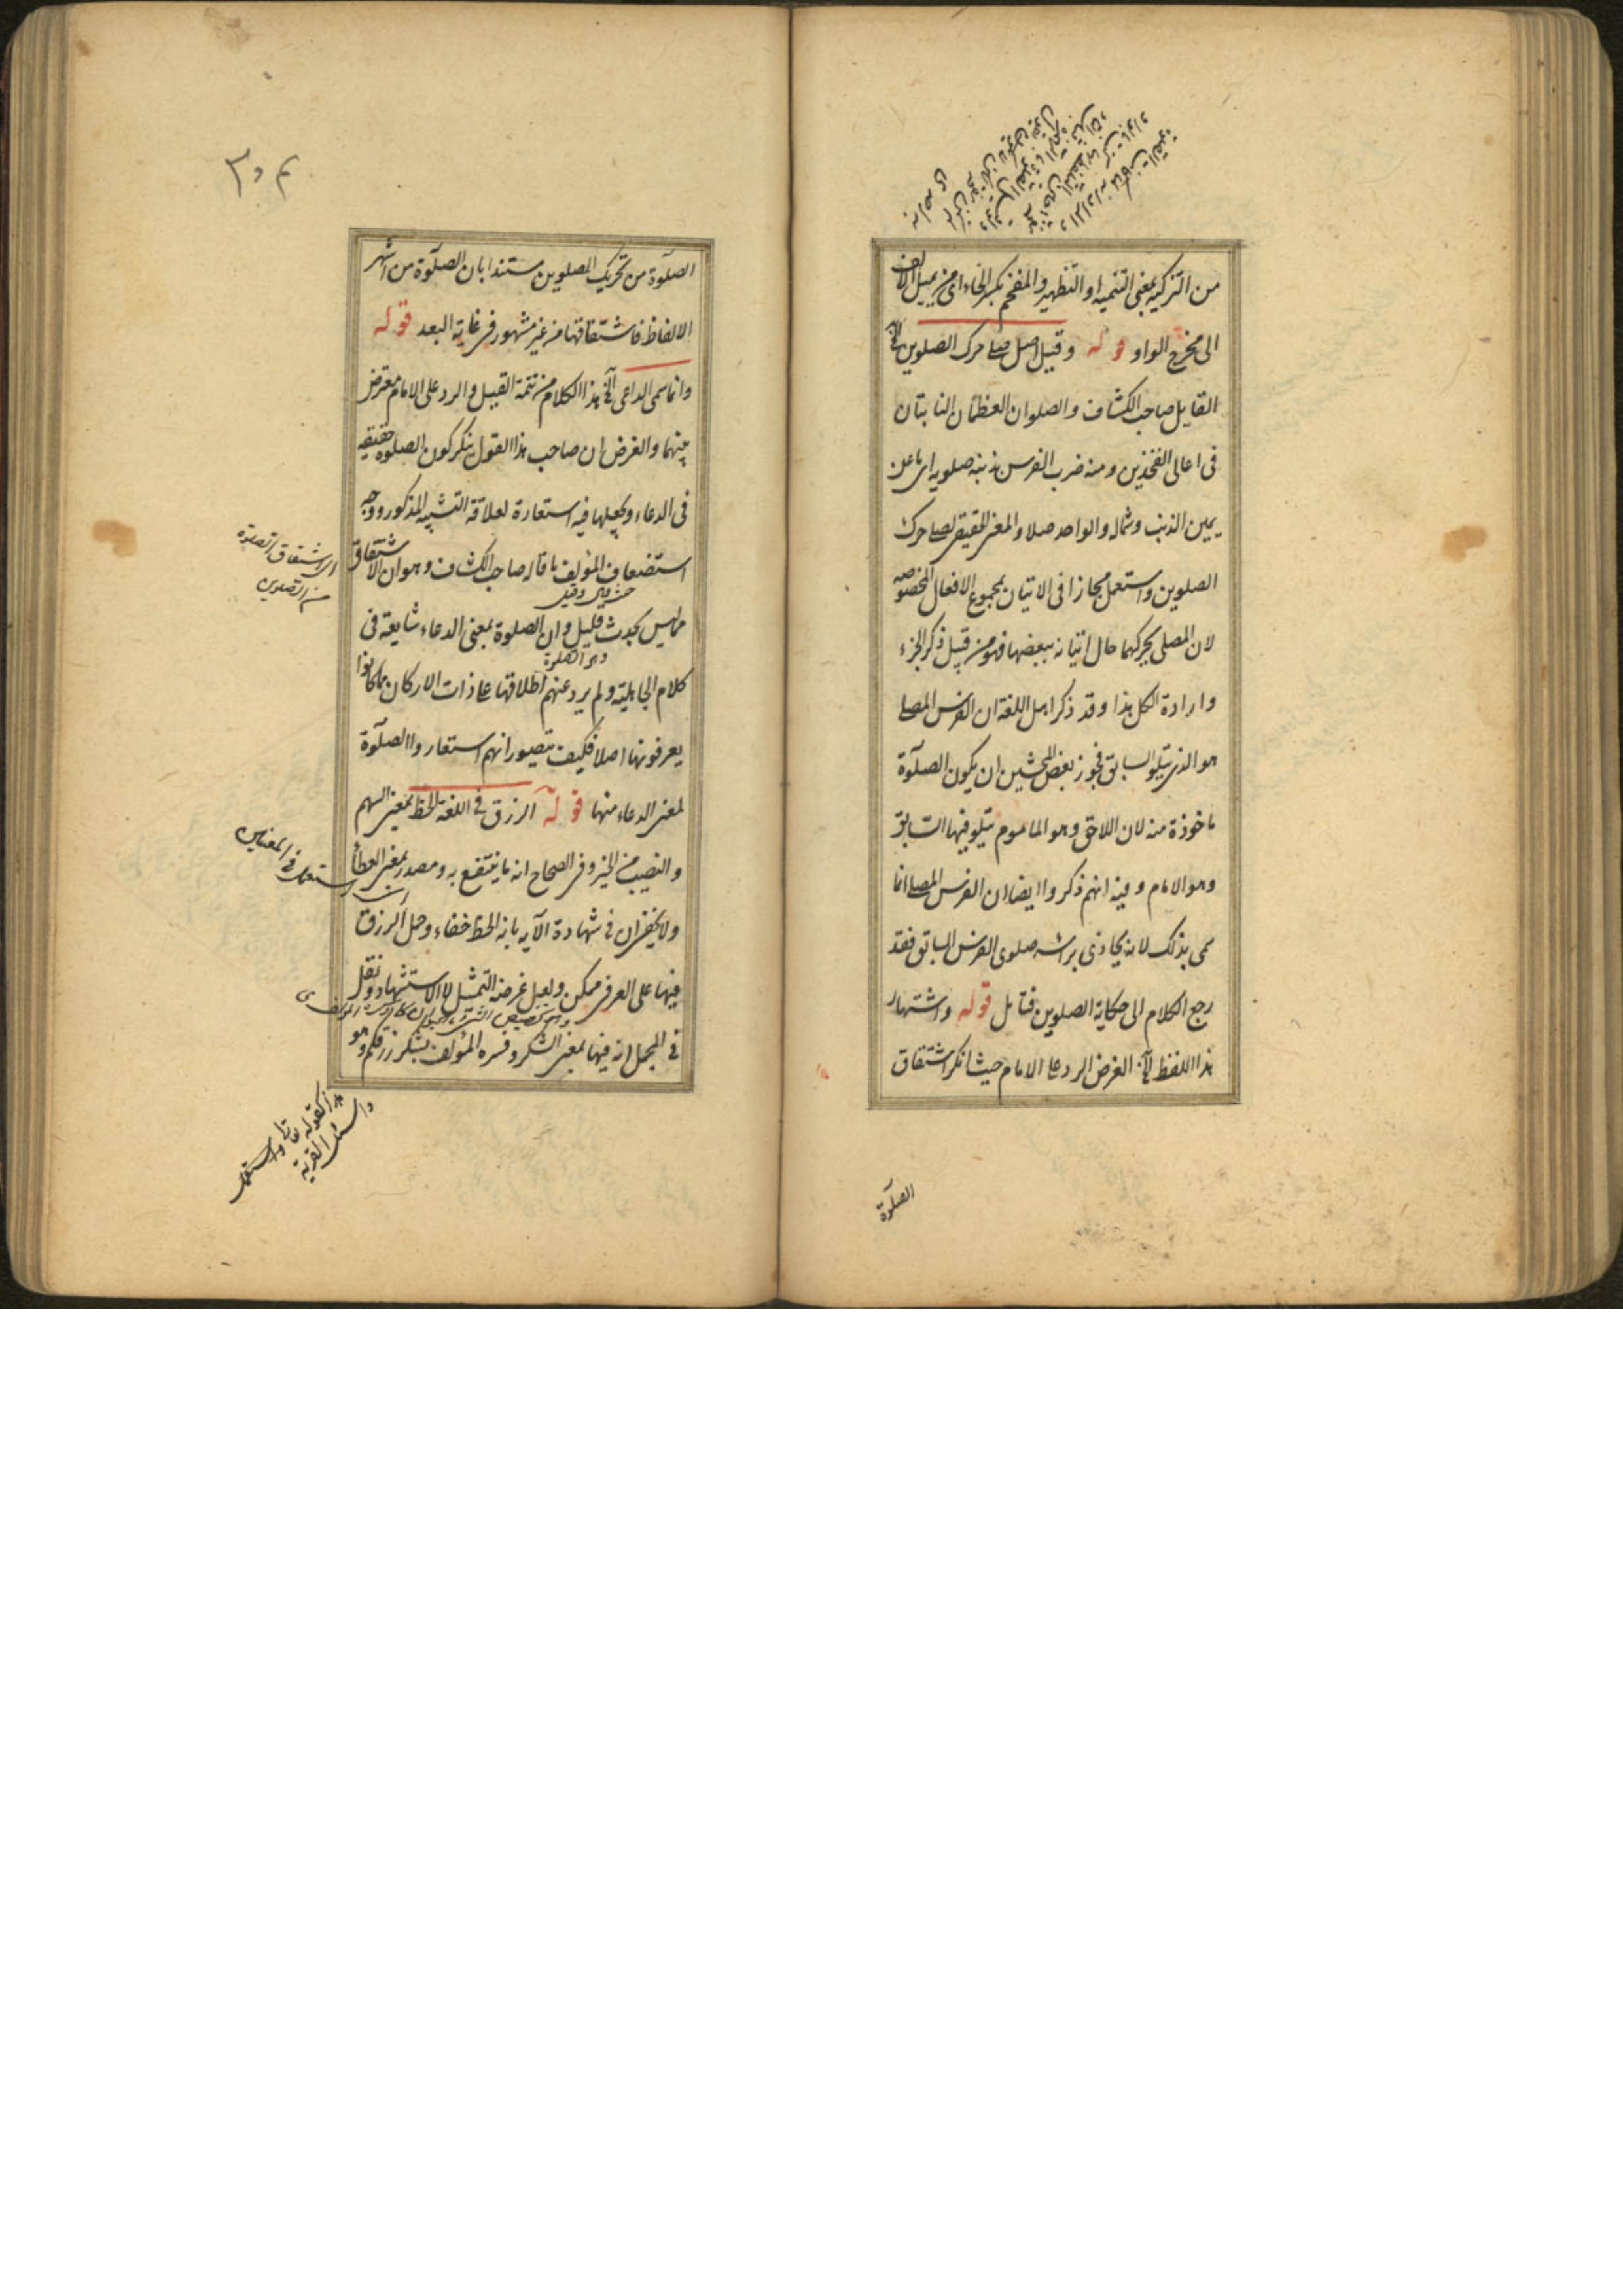 من التزكية بمعنى التنمية او التطهير والمفخم بكسر الخاء اى من يميل الالف
الى مخرج الواو قوله وقيل اصل صلى حرك الصلوين الخ
القايل صاحب الكشاف والصلوان العظمان الناتيان
فى اعالى الفخذين ومنه ضرب الفرس ذنبه صلويه اى ما عن
يمين الذنب وشماله والواحد صلا والمعنى الحقيقى لصلى حرك
الصلوين واستعمل مجازا فى الاتيان بمجموع الافعال المخصوصه
لان المصلى يحركهما حال اتيانه ببعضها فهو من قبيل ذكر الجزء
وارادة الكل هذا وقد ذكر اهل اللغة ان الفرس المصلى
هو الذى يتلو السابق فجوز بعض المحشين ان يكون الصلوة
ماخوذة منه لان اللاحق وهو الماموم يتلو فيها السابق
وهو الامام وفيه انهم ذكروا ايضا ان الفرس المصلى انما
سمى بذلك لانه يحاذى براسه صلوى الفرس السابق فقد
رجع الكلام الى حكاية الصلوين فتامل قوله واشتهار
هذا اللفظ الخ الغرض الرد على الامام حيث انكر اشتقاق
الصلوة
الصلوة من تحريك الصلوين مستندا بان الصلوة من اشهر
الالفاظ فاشتقاقها من غير مشهور فى غاية البعد قوله
وانما سمى الداعى الخ هذا الكلام من تتمة القيل والرد على الامام معترض
بينهما والغرض ان صاحب هذا القول ينكر كون الصلوة حقيقه
فى الدعاء ويجعلها فيه استعارة لعلاقة التشبيه المذكور ووجه
استضعاف المؤلف ما قاله صاحب الكشاف وهو ان الاشتقاق
مما ليس بحدث قليل وان الصلوة بمعنى الدعاء شايعة فى
كلام الجاهلية ولم يرد عنهم اطلاقها على ذات الاركان بل ما كانوا
يعرفونها اصلا فكيف يتصور انهم استعاروا الصلوة
لمعنى الدعاء منها قوله الرزق فى اللغة الحظ بمعنى السهم
والنصيب من الخير وفى الصحاح انه ما ينتفع به ومصدر بمعنى العطا
ولا يخفى ان فى شهادة الآيه بانه الحظ خفاء وحمل الرزق
فيها على العرفى ممكن ولعل غرضه التمثيل لا الاستشهاد ونقل
فى المجمل انه فيها بمعنى الشكر وفسره المؤلف بشكر رزقكم وهو
اى اشتقاق الصلوة
من الصلوين
استعمل فى المعنيين
واسئل القرية